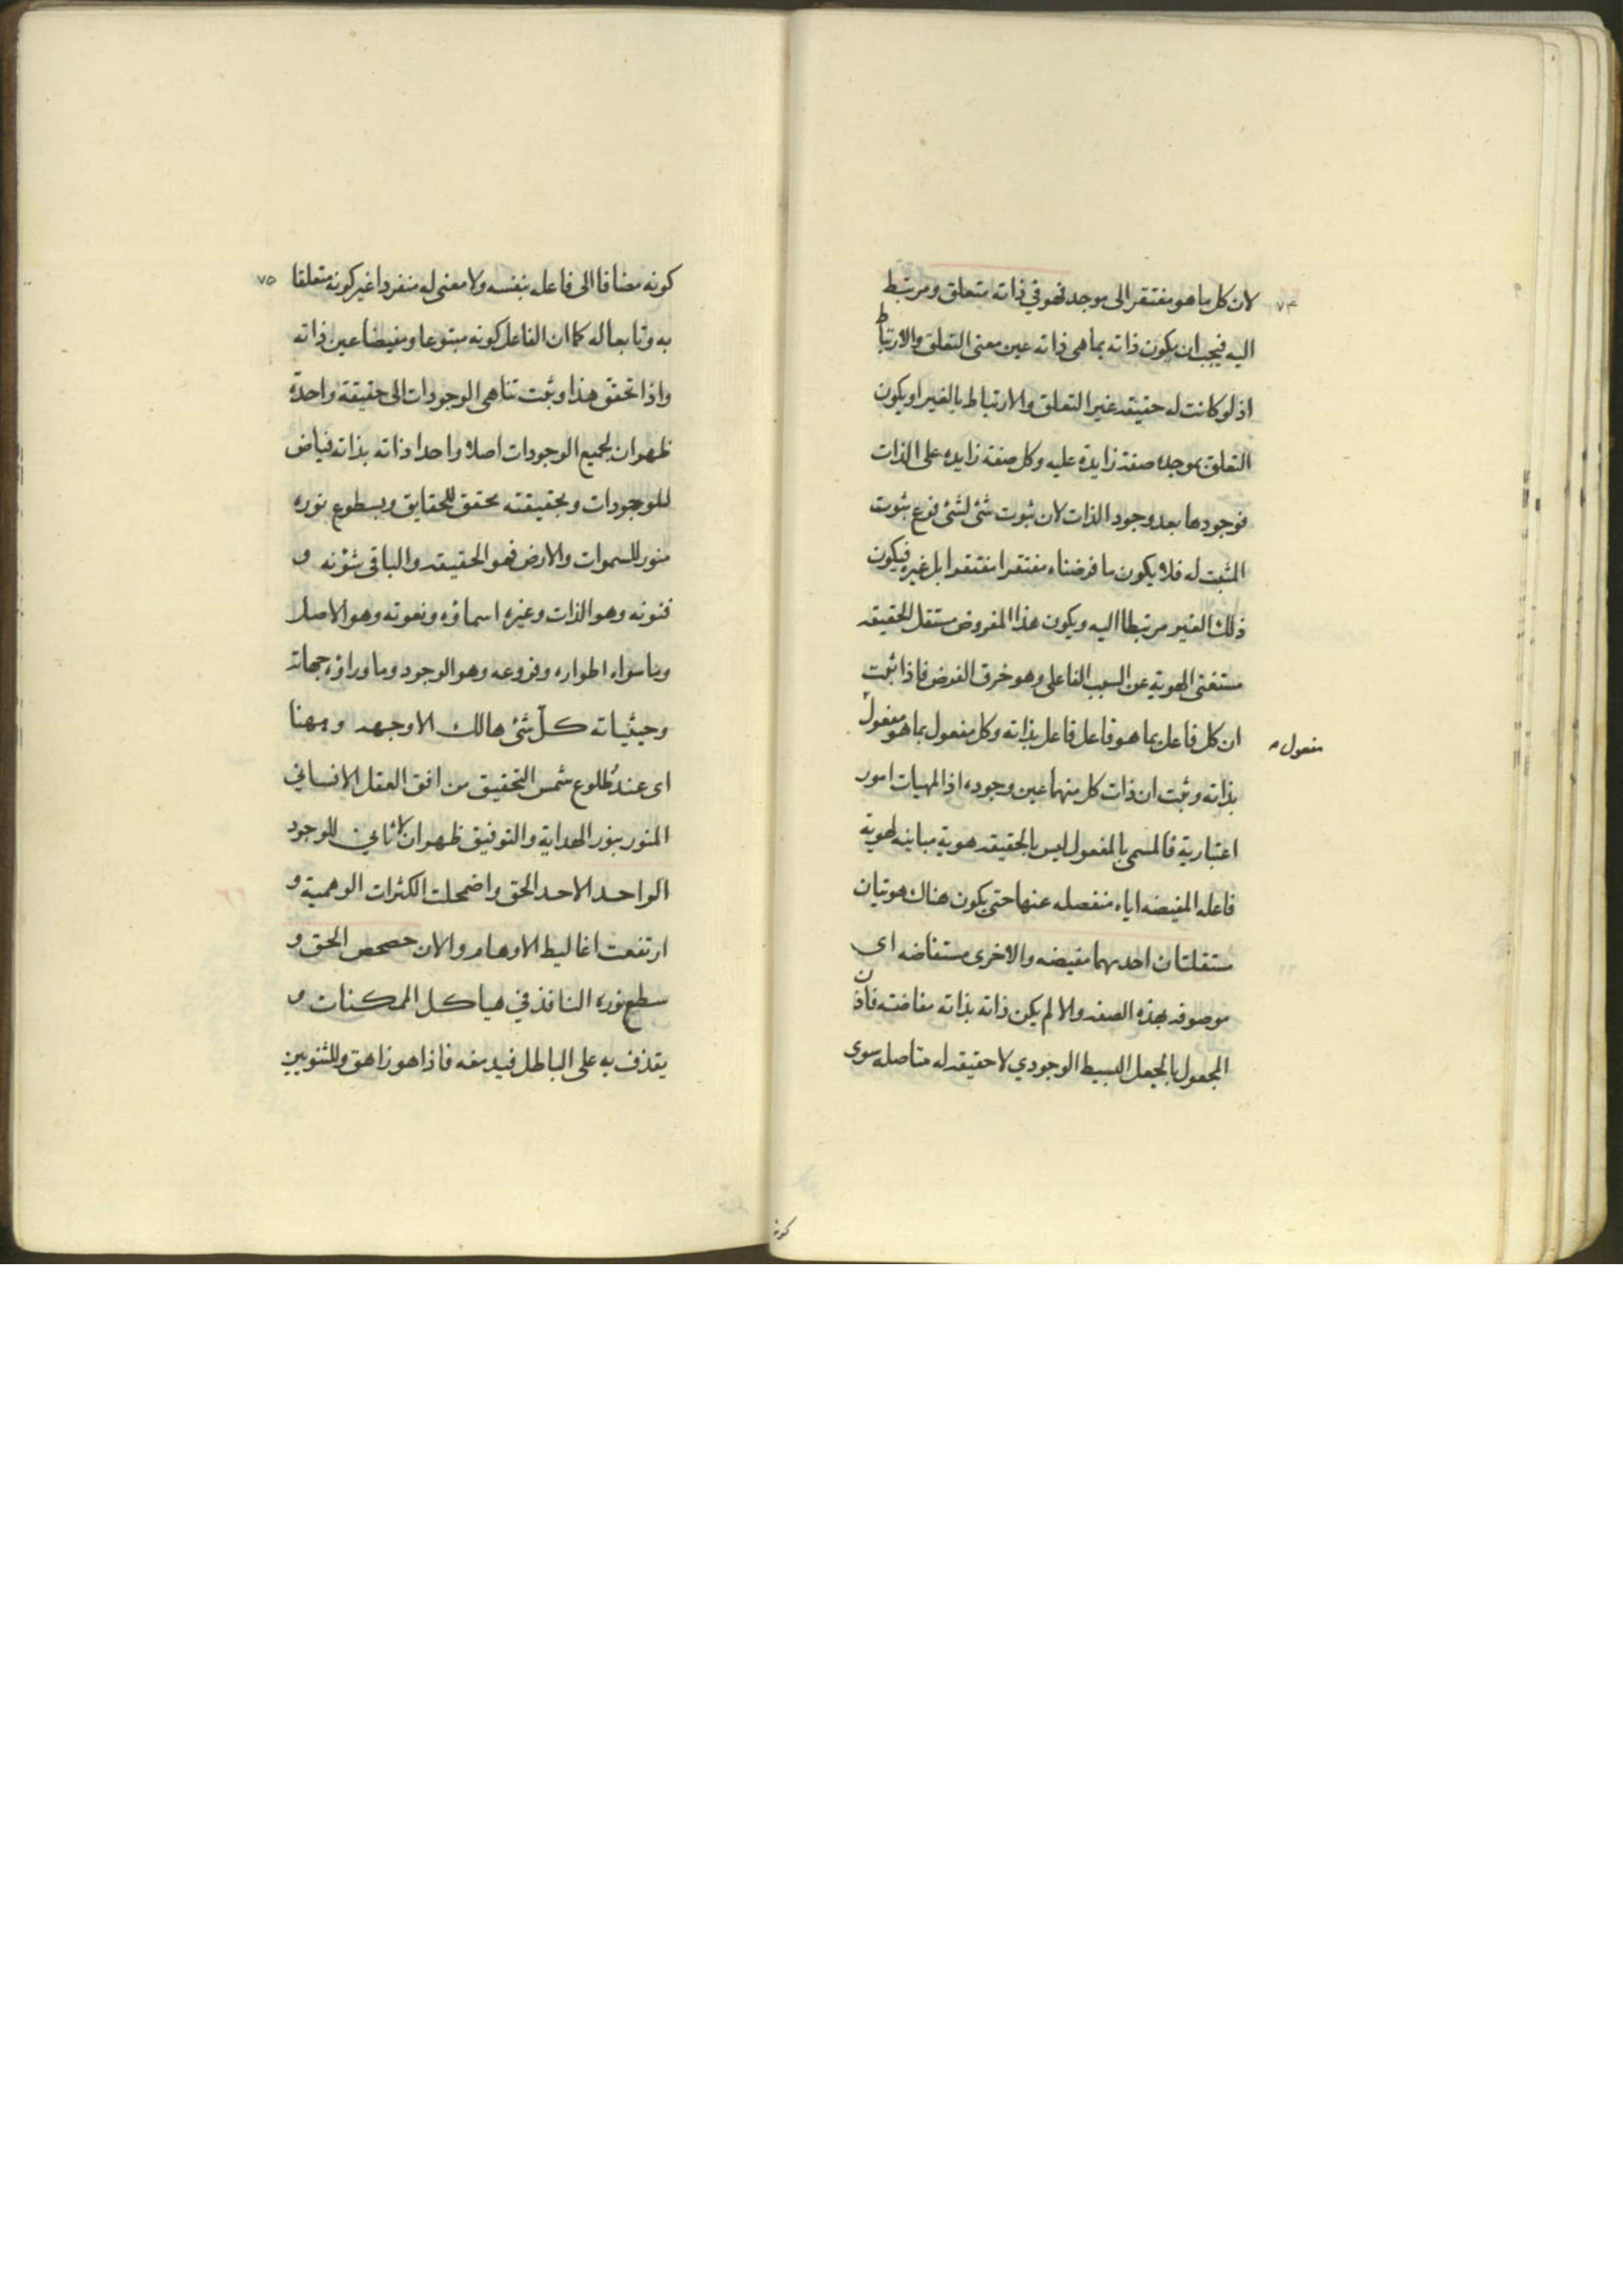 ٧٤
لان كل ما هو مفتقر الى موجد فهو في ذاته متعلق ومرتبط
اليه فيجب ان يكون ذاته بما هى ذاته عين معنى التعلق والارتباط
اذ لو كانت له حقيقه غير التعلق والارتباط بالغير او يكون
التعلق بموجده صفة زايدة عليه وكل صفة زايده على الذات
فوجودها بعد وجود الذات لان ثبوت شئ لشئ فرع ثبوت
المثبت له فلا يكون ما فرضناه مفتقرا مفتقرا بل غيره فيكون
ذلك الغير مرتبطا اليه ويكون هذا المفروض مستقل الحقيقه
مستغنى الهوية عن السبب الفاعلى وهو خرق الفرض فاذا ثبت
ان كل فاعل بما هو فاعل فاعل بذاته وكل مفعول بما هو مفعول
مفعول
بذاته وثبت ان ذات كل منهما عين وجوده اذ المهيات امور
اعتبارية فالمسمى بالمفعول ليس بالحقيقه هوية مباينه لهوية
فاعله المفيضه اياه منفصله عنها حتى يكون هناك هويتان
مستقلتان احديهما مفيضه والاخرى مستفاضه اى
موصوفه بهذه الصفه والا لم يكن ذاته بذاته مفاضته فاذن
المجعول بالجعل البسيط الوجودي لا حقيقه له متاصله سوى
كونه
٧٥
كونه مضافا الى فاعله بنفسه ولا معنى له منفردا غير كونه متعلقا
به وتابعا له كما ان الفاعل كونه متبوعا ومفيضا عين ذاته
واذا تحقق هذا وثبت تناهى الوجودات الى حقيقة واحدة
ظهر ان لجميع الوجودات اصلا واحدا ذاته بذاته فياض
للموجودات وبحقيقته محقق للحقايق وبسطوع نوره
منور للسموات والارض فهو الحقيقه والباقى شؤنه و
فنونه وهو الذات وغيره اسماؤه ونعوته وهو الاصل
وما سواه اطواره وفروعه وهو الوجود وما وراؤه جهاته
وحيثياته كلّ شئ هالك الا وجهه وههنا
اى عند طلوع شمس التحقيق من افق العقل الانساني
المنور بنور الهداية والتوفيق ظهر ان لا ثاني للوجود
الواحد الاحد الحق واضمحلت الكثرات الوهمية و
ارتفعت اغاليط الاوهام والان حصحص الحق و
سطع نوره النافذ في هياكل الممكنات و
يقذف به على الباطل فيدمغه فاذا هو زاهق وللثنويين